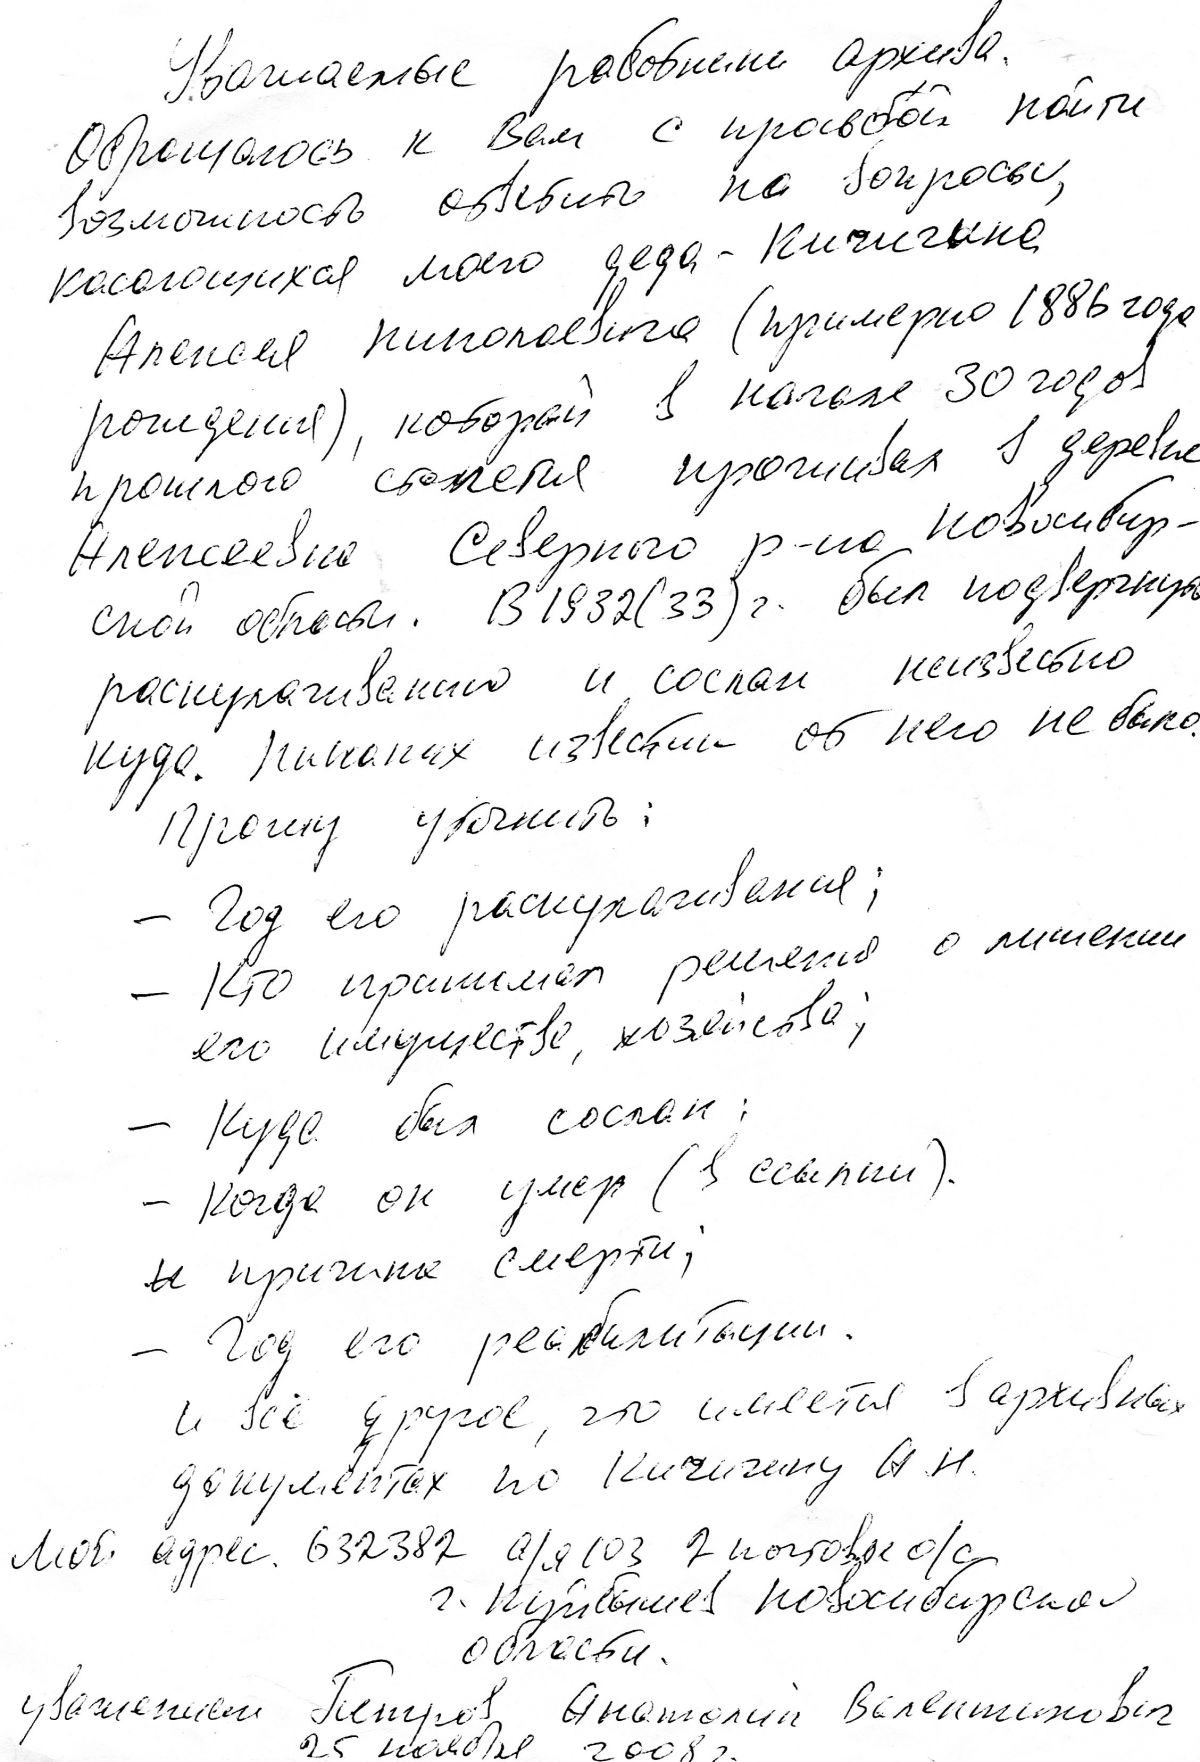 Уважаемые работники архива.
Обращаюсь к Вам с просьбой найти
возможность ответить на вопросы,
касающихся моего деда - Кичигина
Алексея Николаевича (примерно 1886 года
рождения), который в начале 30 годов
прошлого столетия проживал в деревне
Алексеевка Северного р-на Новосибир-
ской области. В 1932(33) г. был подвергнут
раскулачиванию и сослан неизвестно
куда. Никаких известий от него не было.
Прошу уточнить:
- Год его раскулачивания;
- Кто принимал решения о лишении
его имущества, хозяйства;
- Куда был сослан;
- Когда он умер (в ссылки).
и причина смерти;
- Год его реабилитации.
и всё другое, что имеется в архивных
документах по Кичигину А.Н.
Мой адрес. 632382 а/я 103 2 почтовое о/с
г. Куйбышев Новосибирской
области.
уважением Петров Анатолий Валентинович
25 ноября 2008 г.